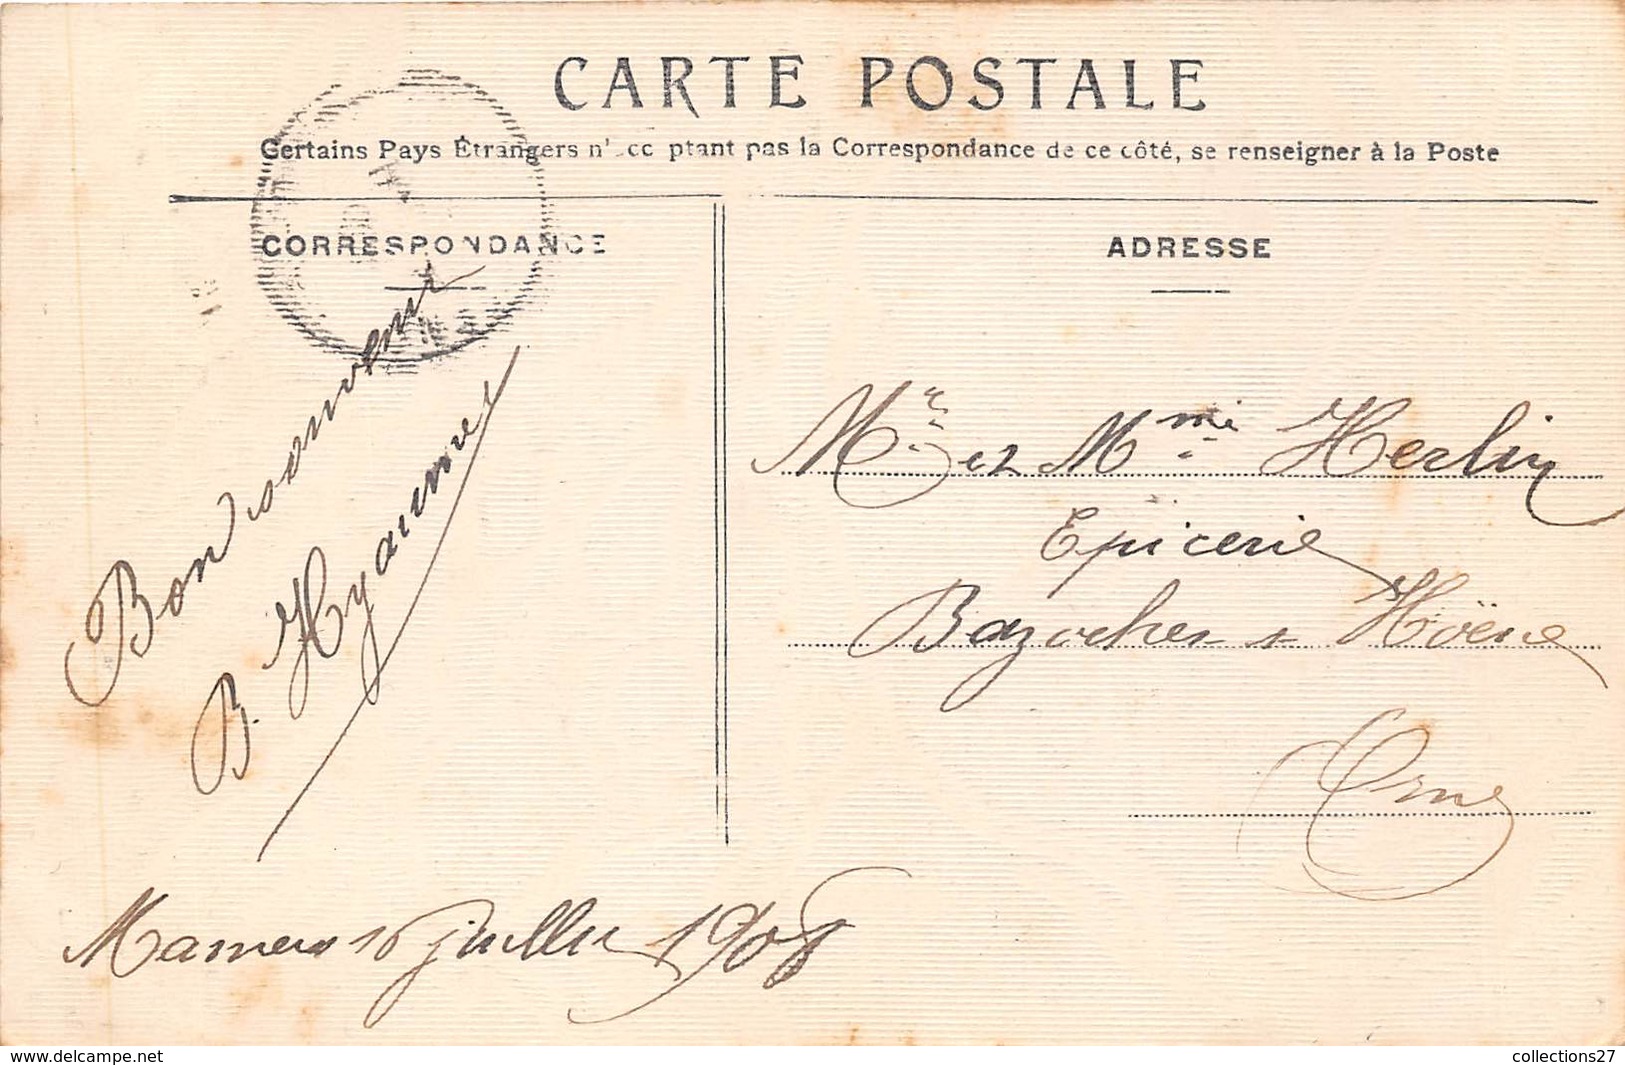 CARTE POSTALE
Certains Pays Étrangers n'acceptant pas la Correspondance de ce côté, se renseigner à la Poste
CORRESPONDANCE
ADRESSE
Bon souvenir
B. Hyaume
Mamers 16 juillet 1908
Mr et Mme Herlin
Epicerie
Bazoches s Hoëne
Orne
www.delcampe.net
collections27